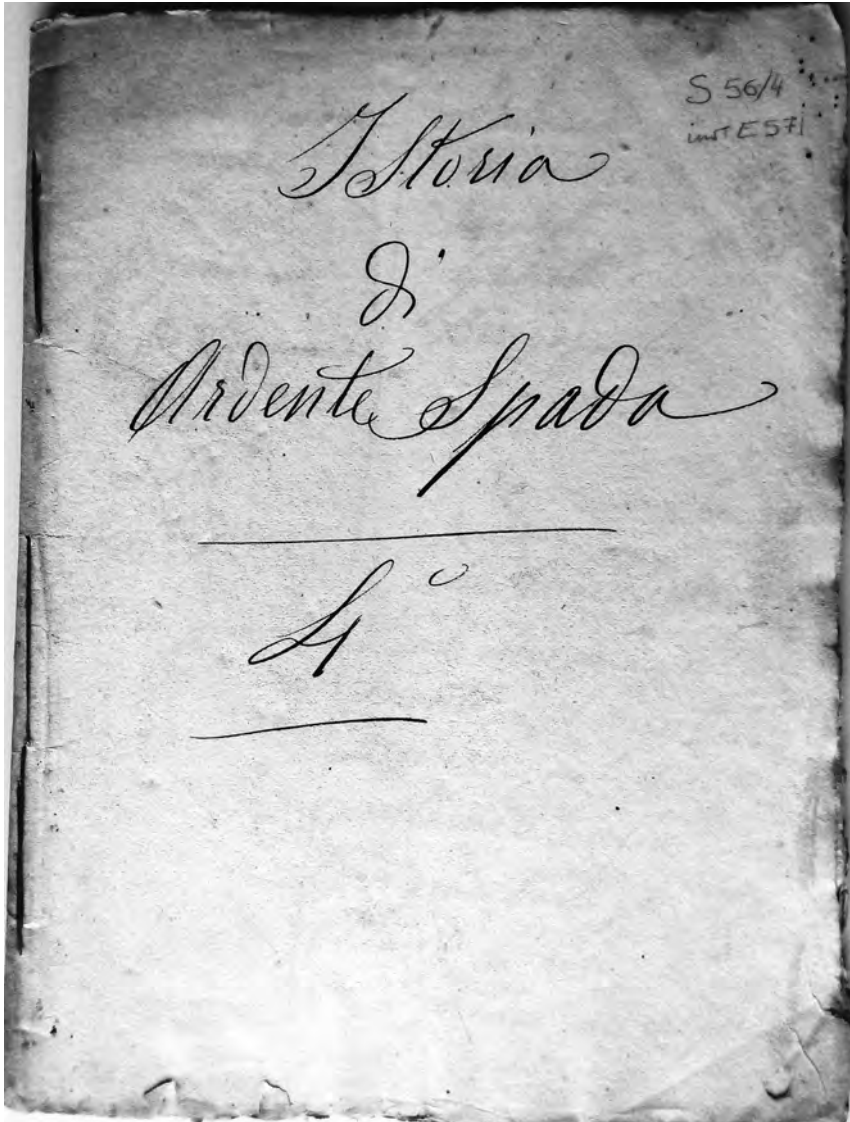 S 56/4
inv. E571
IStoria
di
Ardente Spada
4°